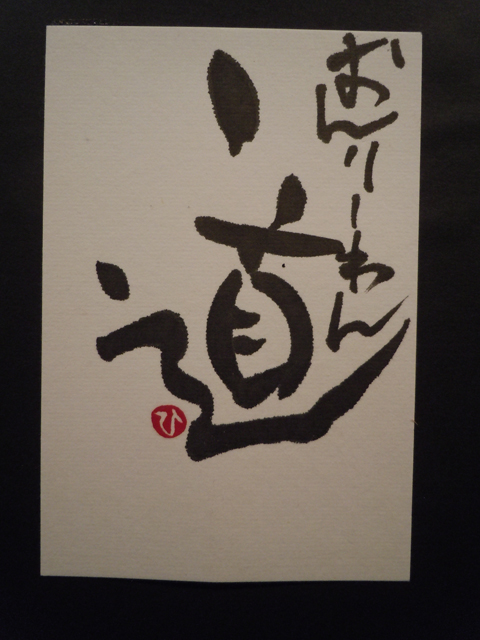 おんりーわん
道
ひ